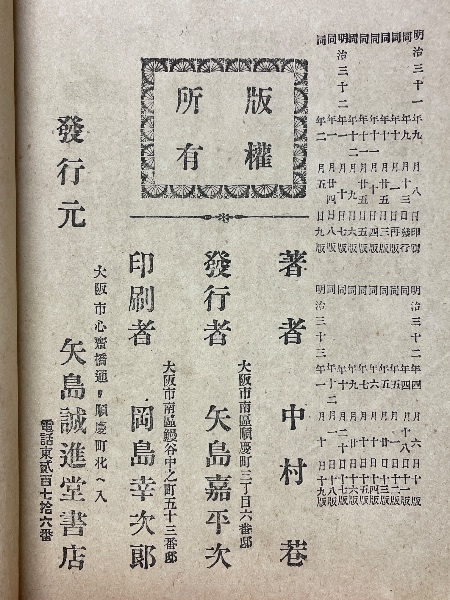 明治三十一年九月八日印刷
同年九月十三日發行
同年十月一日再版
同年十月廿五日三版
同年十一月十日四版
同年十一月廿五日五版
同年十二月九日六版
明治三十二年一月十日七版
同年一月廿四日八版
同年二月五日九版
明治三十二年四月六日十版
同年四月十八日十一版
同
同
同
同
同
同
明治三十三年一月十日十九版
版權
所有
著者 中村 巷
發行者 矢島嘉平次
大阪市南區順慶町三丁目六番邸
印刷者 岡島幸次郎
大阪市南區鰻谷中之町五十三番邸
發行元 矢島誠進堂書店
大阪市心齋橋通リ順慶町北ヘ入
電話東貳百七拾六番